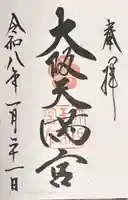 奉拝
大阪天満宮
令和八年一月二十一日